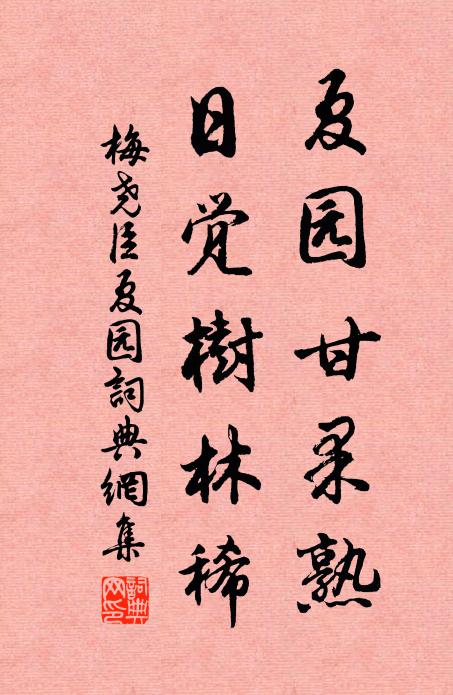 夏园甘果熟
日觉樹林稀
梅尧臣夏园詞典網集
詞典网印